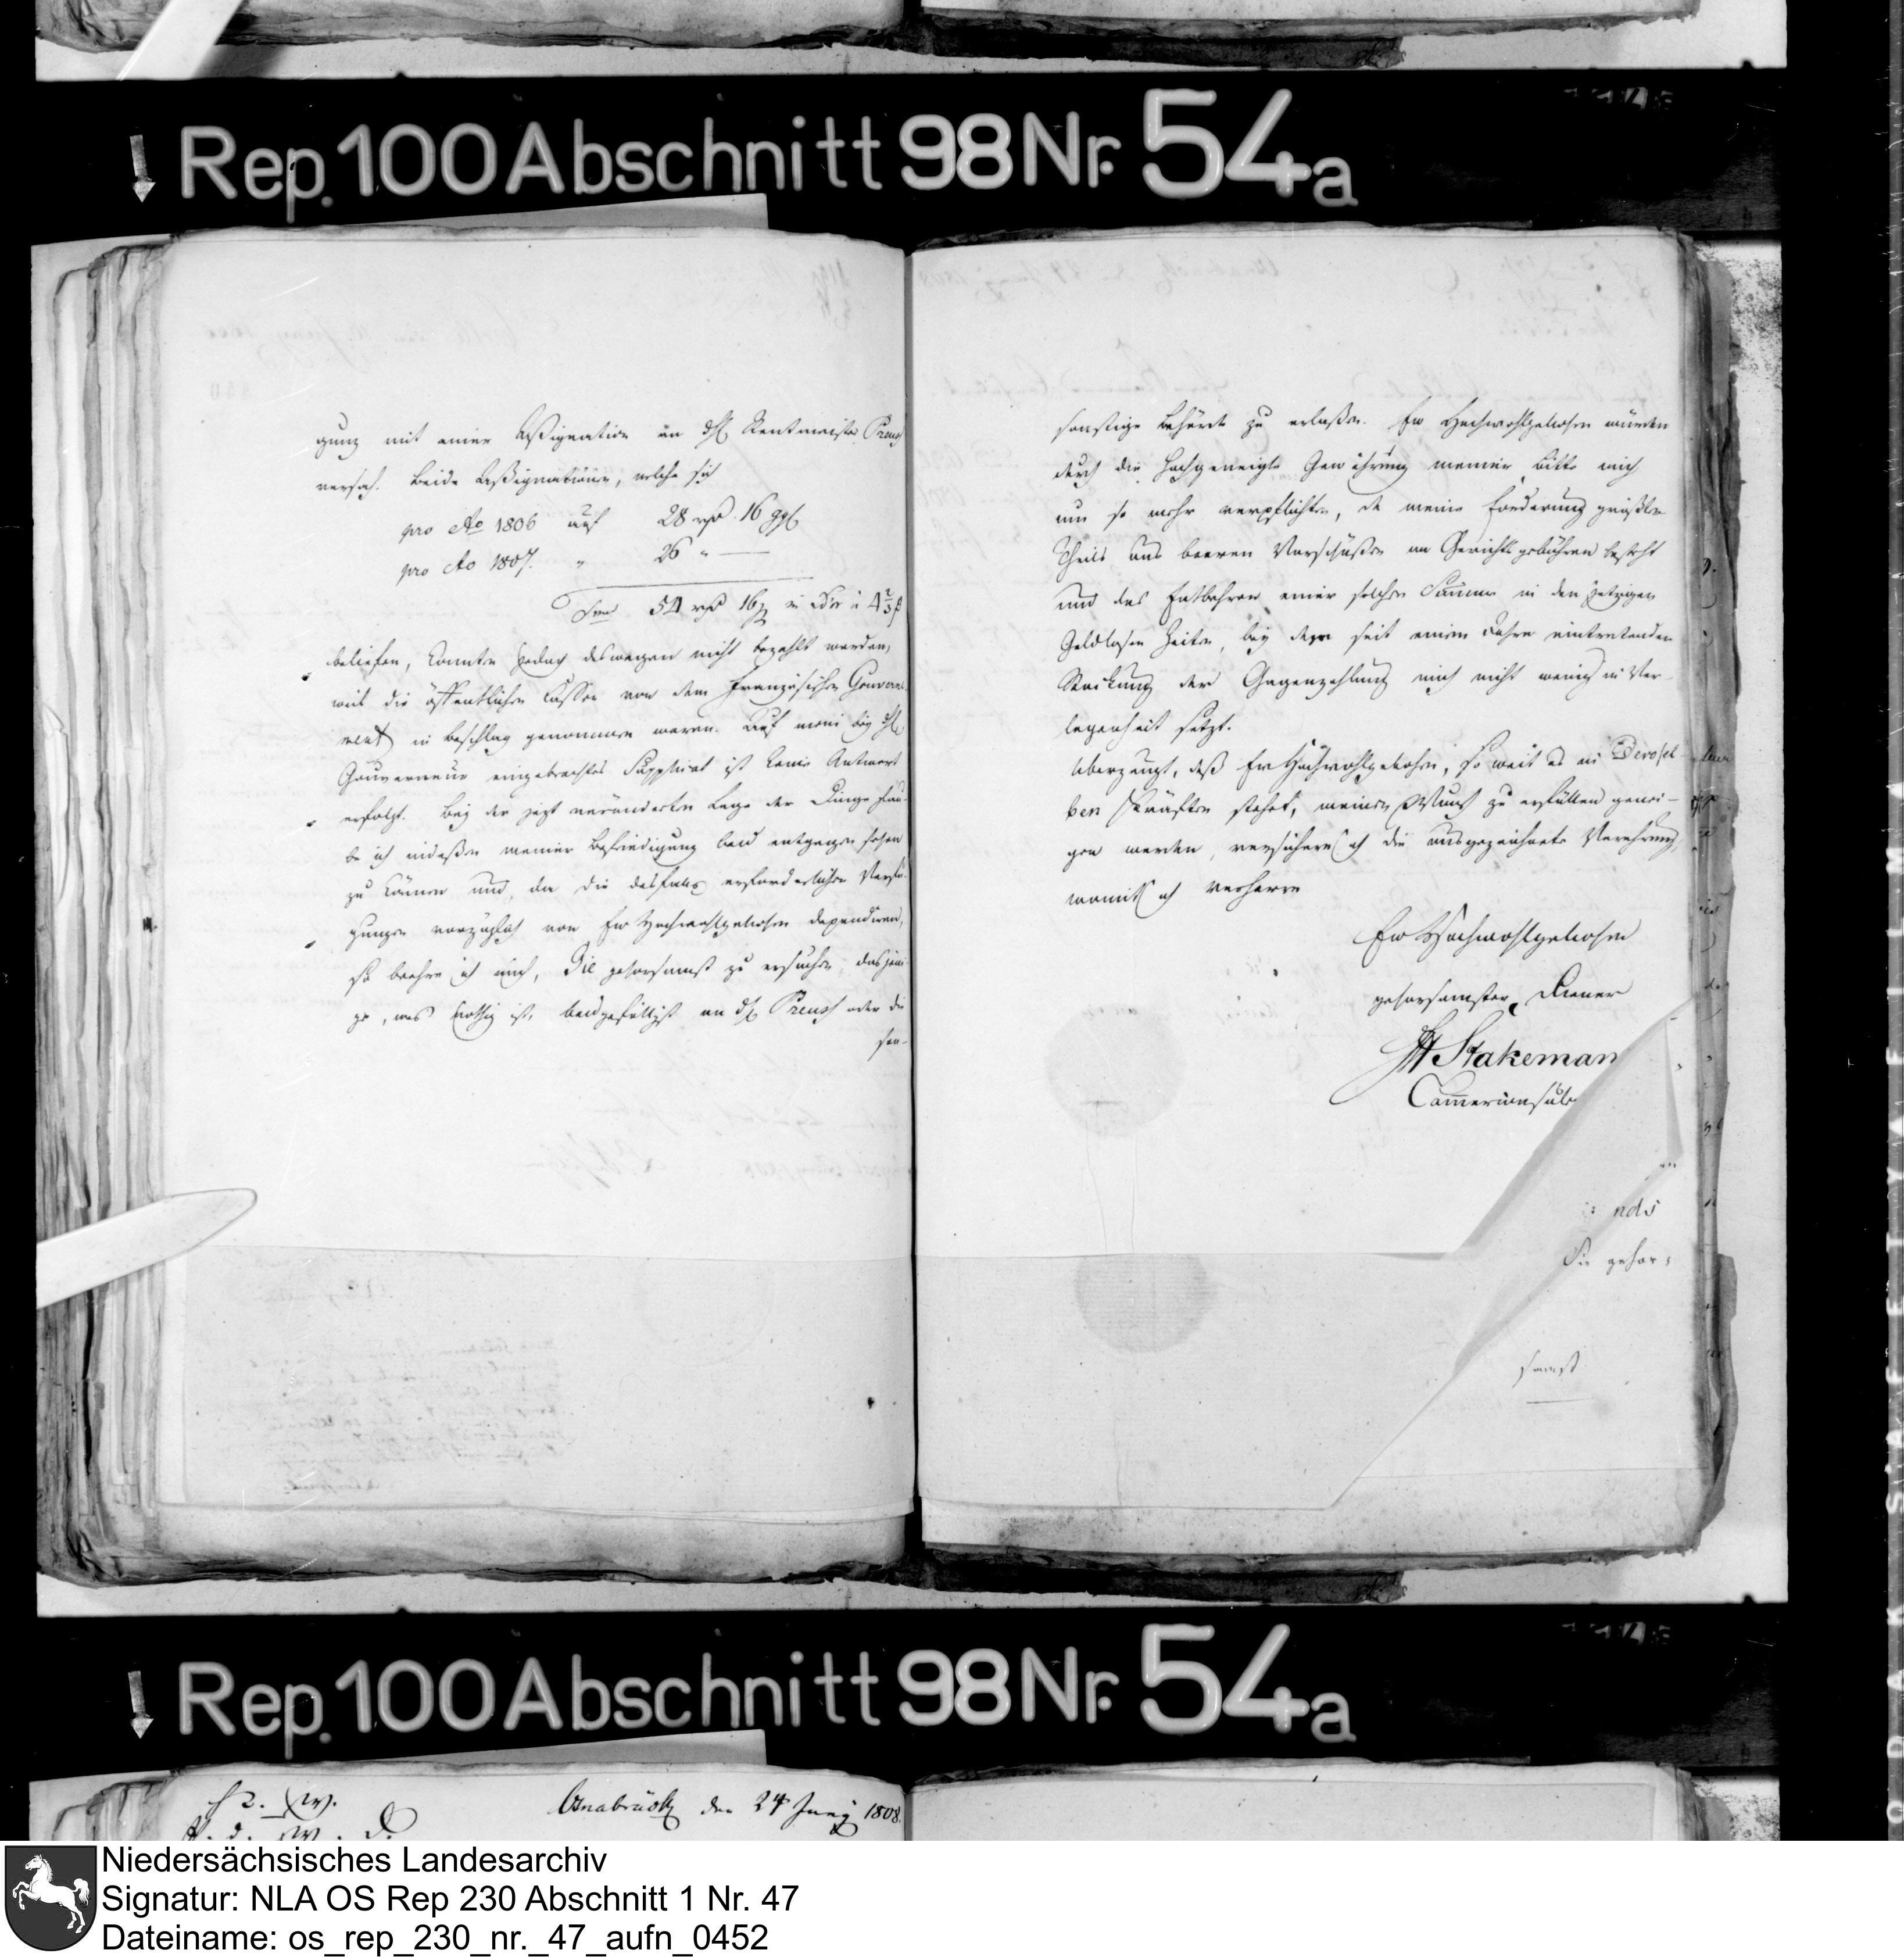 Rep. 100 Abschnitt 98 Nr. 54a
gung mit einer Assignation an dH Rentmeister Preuss
versah. Beide Assignationen, welche sich
pro Ao 1806 auf 28 rß 16 ggl
pro Ao 1807. " 26 " —
54 rß 16 in à 4 2/3
beliefen, konnten jedoch deswegen nicht bezahlt werden,
weil die öffentlichen Cassen von dem französischen Gouverne-
ment in Beschlag genommen waren. Auf mein bey dH
Gouverneur eingebrachtes Supplicat ist keine Antwort
erfolgt. Bey der jezt veränderten Lage der Dinge glau-
be ich indessen meiner Befriedigung bald entgegen sehen
zu können und, da die desfalls erforderlichen Verfü-
gungen vorzüglich von Ew Hochwohlgebohren dependiren,
so beehre ich mich, Sie gehorsamst zu ersuchen, dasjeni-
ge, was nöthig ist, baldgefälligst an dH Preuss oder die
son-
sonstige Behörde zu erlassen. Ew Hochwohlgebohren würden
durch die hochgeneigte Gewährung meiner Bitte mich
um so mehr verpflichten, da meine Forderung größten
Theils aus baaren Vorschüssen an Gerichtsgebühren besteht
und das Entbehren einer solchen Summe in den jetzigen
Geldlosen Zeiten, bey der seit einem Jahre eintretenden
Stockung der Gagenzahlung mich nicht wenig in Ver-
legenheit setzt.
Überzeugt, daß Ew Hochwohlgebohren, so weit es in Derosel-
ben Kräften stehet, meinen Wunsch zu erfüllen genei-
gen werden, versichere ich die ausgezeichnete Verehrung,
womit ich verharre
Ew Hochwohlgebohren
gehorsamster Diener
Stakeman
nds
Sie gehor-
samst
Rep. 100 Abschnitt 98 Nr. 54a
Osnabrück den 24 Juny 1808.
Niedersächsisches Landesarchiv
Signatur: NLA OS Rep 230 Abschnitt 1 Nr. 47
Dateiname: os_rep_230_nr._47_aufn_0452